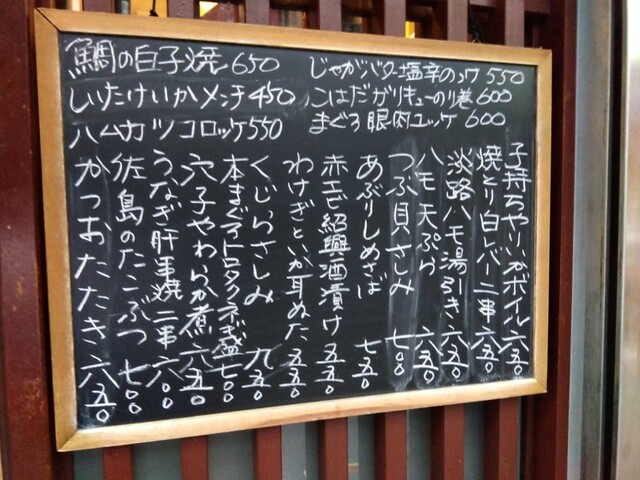 鯛の白子焼 650
しいたけいかメンチ 450
ハムカツコロッケ 550
じゃがバター塩辛のっけ 550
こはだガリキューのり巻 600
まぐろ眼肉ユッケ 600
子持ちやりいかボイル 六五〇
焼とり白レバー二串 六五〇
淡路ハモ湯引き 六五〇
ハモ天ぷら 六五〇
つぶ貝さしみ 七〇〇
あぶりしめさば 七五〇
赤エビ紹興酒漬け 五五〇
わけぎといか耳ぬた 五五〇
くじらさしみ 九五〇
本まぐろトロタクねぎ盛 七〇〇
穴子やわらか煮 六五〇
うなぎ肝串焼二串 六〇〇
佐島のたこぶつ 七〇〇
かつおたたき 六五〇